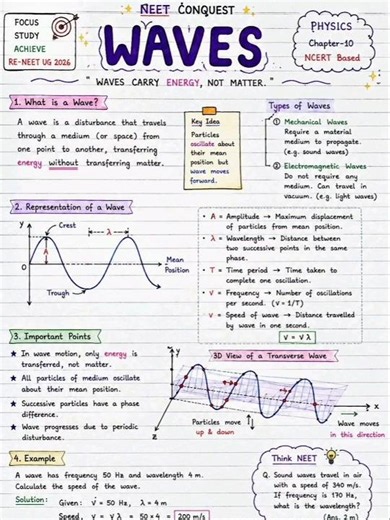 FOCUS
STUDY
ACHIEVE
RE-NEET UG 2026
NEET CONQUEST
WAVES
PHYSICS
Chapter-10
NCERT Based
" WAVES CARRY ENERGY, NOT MATTER. "
1. What is a Wave?
A wave is a disturbance that travels
through a medium (or space) from
one point to another, transferring
energy without transferring matter.
Key Idea
Particles
oscillate about
their mean
position but
wave moves
forward.
Types of Waves
① Mechanical Waves
Require a material
medium to propagate.
(e.g. sound waves)
② Electromagnetic Waves
Do not require any
medium. Can travel in
vacuum. (e.g. light waves)
2. Representation of a Wave
y
Crest
λ
A
0
Mean
Position
Trough
• A = Amplitude → Maximum displacement
of particles from mean position.
• λ = Wavelength → Distance between
two successive points in the same
phase.
• T = Time period → Time taken to
complete one oscillation.
• ν = Frequency → Number of oscillations
per second. (ν = 1/T)
• v = Speed of wave → Distance travelled
by wave in one second.
v = ν λ
3. Important Points
★ In wave motion, only energy is
transferred, not matter.
★ All particles of medium oscillate
about their mean position.
★ Successive particles have a phase
difference.
★ Wave progresses due to periodic
disturbance.
3D View of a Transverse Wave
y
z
x
Particles move
up & down
Wave moves
in this direction
4. Example
A wave has frequency 50 Hz and wavelength 4 m.
Calculate the speed of the wave.
Solution: Given: ν = 50 Hz, λ = 4 m
Speed, v = ν λ = 50 × 4 = 200 m/s
Think NEET
Q. Sound waves travel in air
with a speed of 340 m/s.
If frequency is 170 Hz,
what is the wavelength?
(Ans. 2 m)